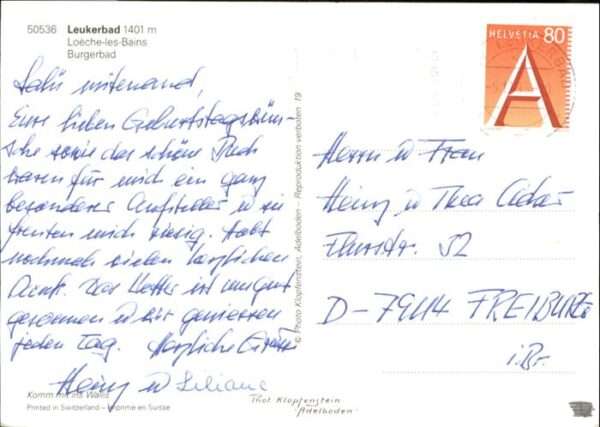 50536 Leukerbad 1401 m
Loèche-les-Bains
Burgerbad
Salü mitenand,
Eure lieben Geburtstagswün-
sche sowie das schöne Buch
waren für mich ein ganz
besonderer Aufsteller u sie
freuten mich riesig. Habt
nochmals vielen herzlichen
Dank. Das Wetter ist uns gut
gesonnen u wir geniessen
jeden Tag. Herzliche Grüsse
Heinz u Liliane
Komm mit ins Wallis
Printed in Switzerland – Imprimé en Suisse
© Photo Klopfenstein, Adelboden – Reproduktion verboten 19
HELVETIA 80
A
Herrn u Frau
Heinz u Thea
52
D-79114 FREIBURG
i. Br.
Thot Klopfenstein
"Adelboden"